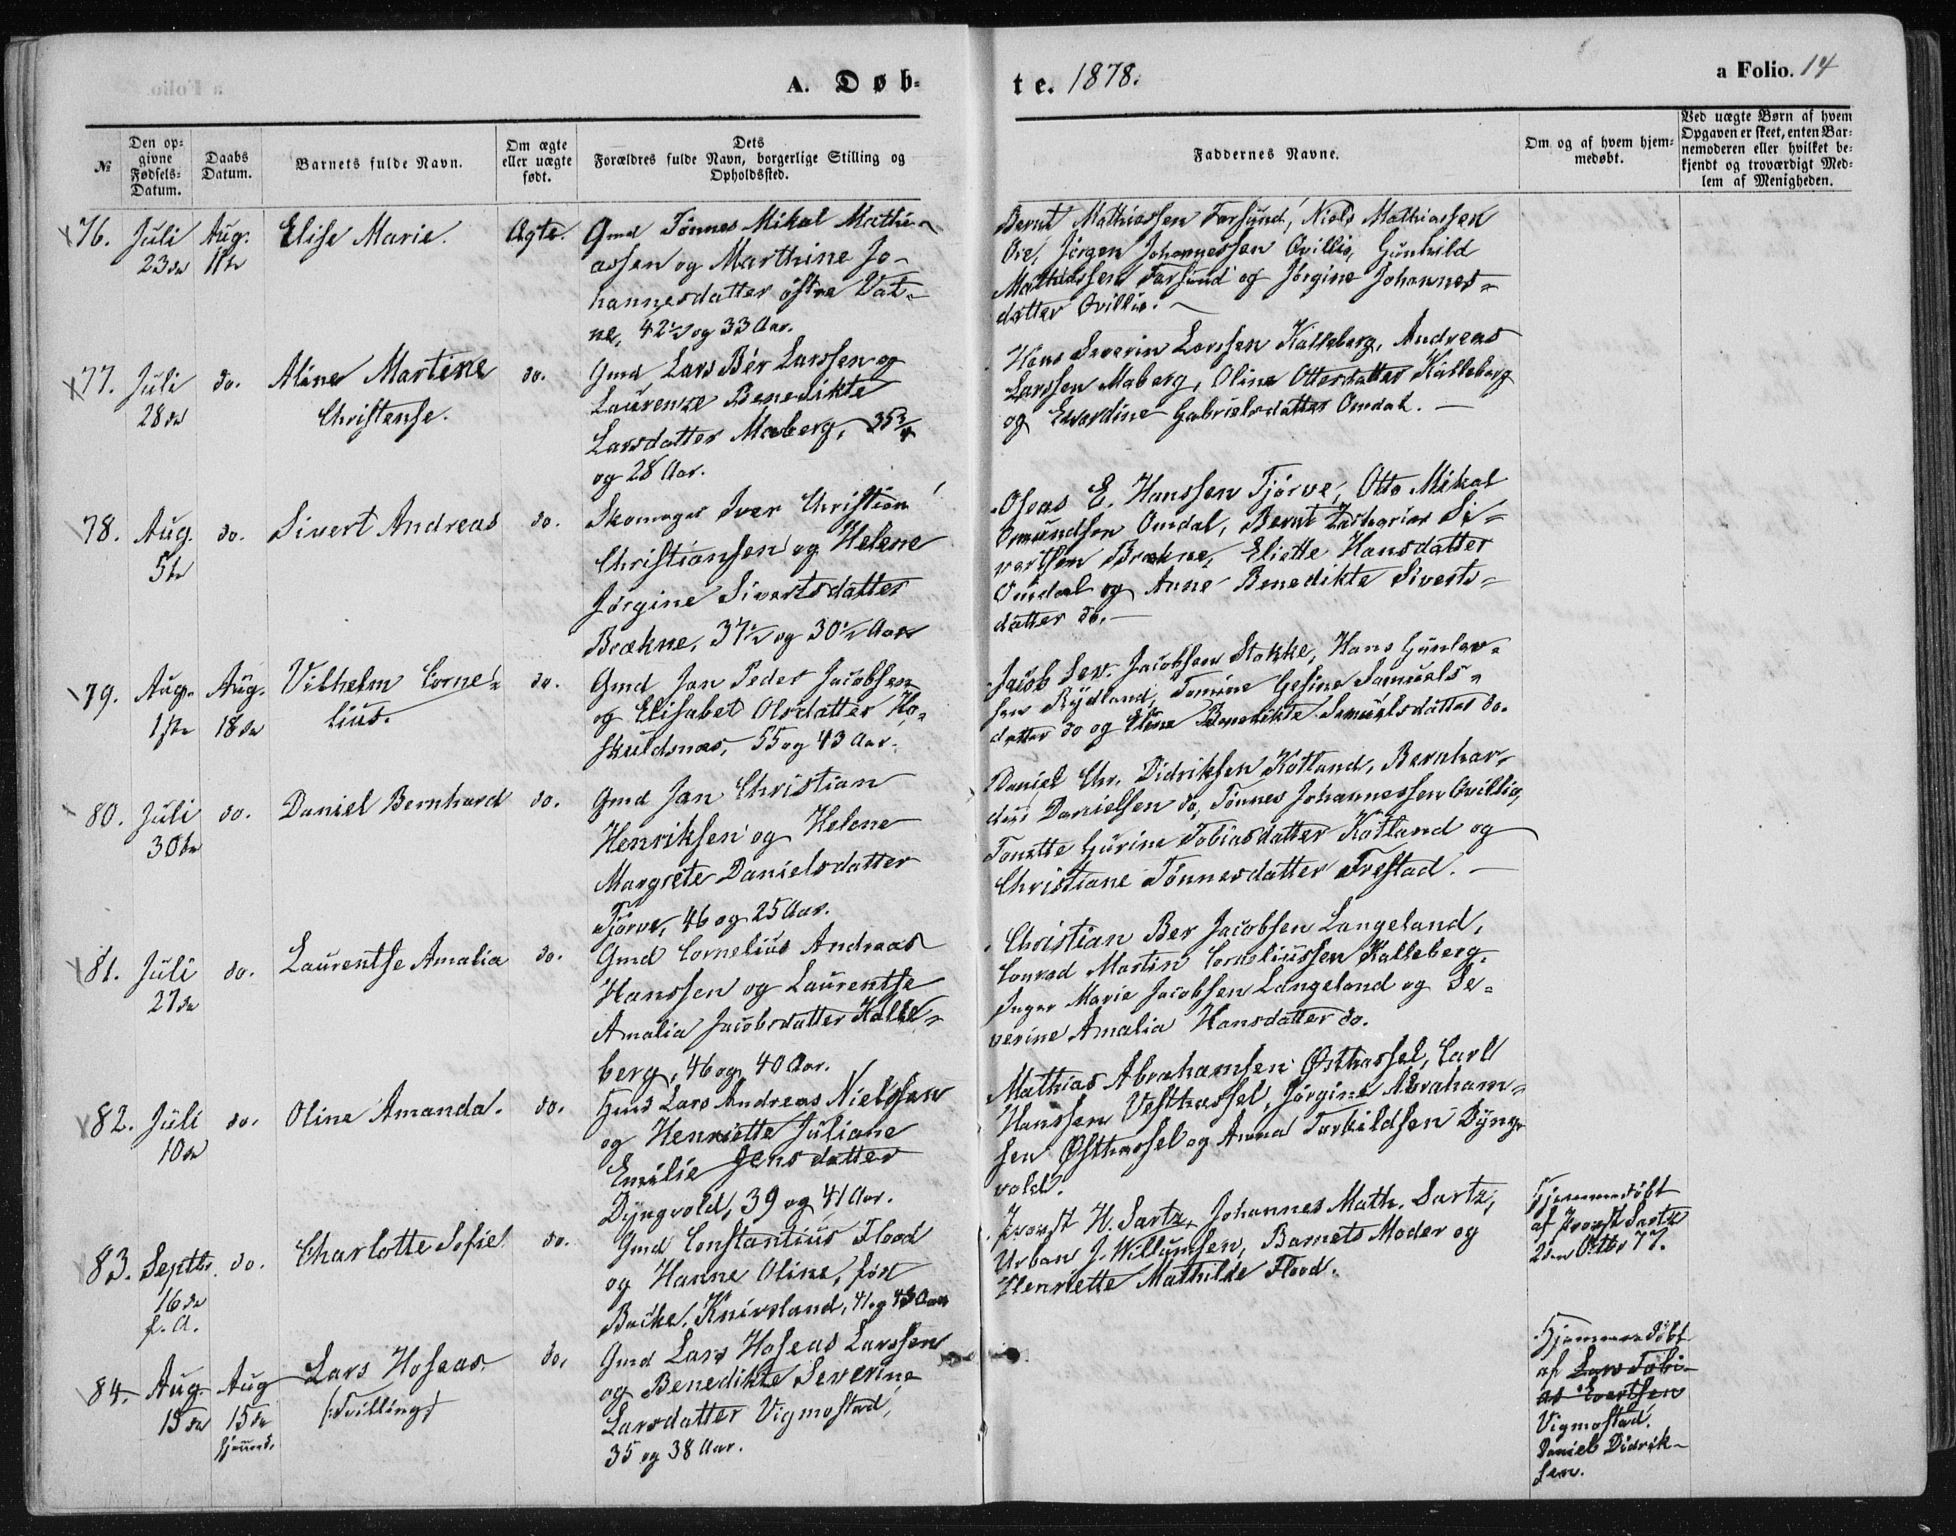 A. Døb-
te. 1878.
a Folio. 14
№
Den op-
givne
Fødsels-
Datum.
Daabs
Datum.
Barnets fulde Navn.
Om ægte
eller uægte
født.
Dets
Forældres fulde Navn, borgerlige Stilling og
Opholdssted.
Faddernes Navne.
Om og af hvem hjem-
medøbt.
Ved uægte Børn af hvem
Opgaven er skeet, enten Bar-
nemoderen eller hvilket be-
kjendt og troværdigt Med-
lem af Menigheden.
76. Juli
23de
Aug.
11te
Elise Marie.
Ægte.
Gmd Tönnes Mikal Mathi-
assen og Marthine Jo-
hannesdatter østre Vat-
ne, 42½ og 33 Aar.
Bernt Mathiassen Farsund, Niels Mathiassen
Ore, Jörgen Johannessen Qvillio, Gunhild
Mathiassen Farsund og Jörgine Johannes-
datter Qvillio.
77. Juli
28de
do.
Aline Martine
Christense.
do.
Gmd Lars Bér Larssen og
Laurenze Benedikte
Larsdatter Maberg, 35¾
og 28 Aar.
Hans Severin Larssen Kalleberg, Andreas
Larssen Maberg, Oline Ottersdatter Kalleberg
og Edvardine Gabrielsdatter Omdal.
78. Aug.
5te
do.
Sivert Andreas
do.
Skomager Iver Christian
Christiansen og Helene
Jörgine Sivertsdatter
Brækne, 37½ og 30½ Aar
Oseas E. Hanssen Tjörve, Otto Mikal
Omundsen Omdal, Bernt Zacharias Si-
vertsen Brækne, Eliette Hansdatter
Omdal og Anne Benedikte Siverts-
datter do.
79. Aug.
1ste
Aug.
18de
Vilhelm Corne-
lius.
do.
Gmd Jan Peder Jacobsen
og Elisabet Olsdatter Ho-
skuldsnæs, 55 og 43 Aar.
Jacob Sev. Jacobsen Stokke, Hans Gunlev-
sen Rydland, Tomine Gesine Samuels-
datter do og Eline Benedikte Samuelsdatter do.
80. Juli
30te
do.
Daniel Bernhard
do.
Gmd Jan Christian
Henriksen og Helene
Margrete Danielsdatter
Tjörve, 46 og 25 Aar.
Daniel Chr. Didriksen Kotland, Bernhar-
dus Danielsen do, Tönnes Johannessen Qvillio,
Tonette Gurine Tobiasdatter Kotland og
Christiane Tönnesdatter Frestad.
81. Juli
27de
do.
Laurentse Amalia
do.
Gmd Cornelius Andreas
Hanssen og Laurentse
Amalia Jacobsdatter Kalle-
berg, 46 og 40 Aar.
Christian Ber Jacobsen Langeland,
Conrad Martin Corneliussen Kalleberg,
Inger Marie Jacobsen Langeland og Se-
verine Amalia Hansdatter do.
82. Juli
10de
do.
Oline Amanda.
do.
Hmd Lars Andreas Nielssen
og Henriette Juliane
Emilie Jensdatter
Dyngvold, 39 og 41 Aar.
Mathias Abrahamsen Østhassel, Carl
Hanssen Vesthassel, Jörgine Abraham-
sen Østhassel og Anna Torkildsen Dyng-
vold.
83. Septbr.
16de
f. A.
do.
Charlotte Sofie
do.
Gmd Constantius Flood
og Hanne Oline, født
Bache, Knivsland, 41 og 43 Aar
Provst H. Sartz, Johannes Math. Sartz,
Urban J. Willumsen, Barnets Moder og
Henriette Mathilde Flood.
Hjemmedøbt
af Provst Sartz
2den Octbr 77.
84. Aug.
15de
Aug
15de
hjemmed.
Lars Hoseas.
(:Tvilling:)
do.
Gmd Lars Hoseas Larssen
og Benedikte Severine
Larsdatter Vigmostad,
35 og 38 Aar.
Hjemmedøbt
af Lars Tobi-
as Evertsen
Vigmostad.
Daniel Didrik-
sen.